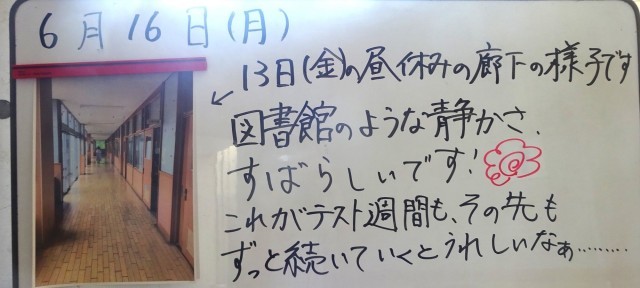 6月16日(月)
13日(金)の昼休みの廊下の様子です
図書館のような静かさ、
すばらしいです!
これがテスト週間も、その先も
ずっと続いていくとうれしいなぁ………